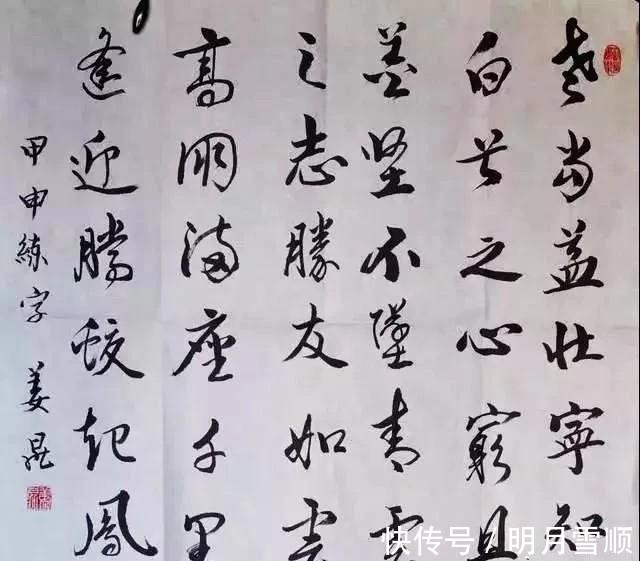 老当益壮宁知
白首之心穷且
益坚不坠青云
之志胜友如云
高朋满座千里
逢迎腾蛟起凤
甲申练字 姜昆
快传号/明月雪顺